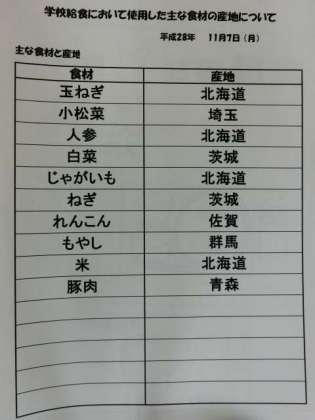 学校給食において使用した主な食材の産地について
平成28年 11月7日（月）
主な食材と産地
食材 産地
玉ねぎ 北海道
小松菜 埼玉
人参 北海道
白菜 茨城
じゃがいも 北海道
ねぎ 茨城
れんこん 佐賀
もやし 群馬
米 北海道
豚肉 青森